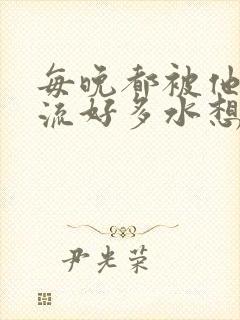 每晚都被他
流好多水想
尹光荣